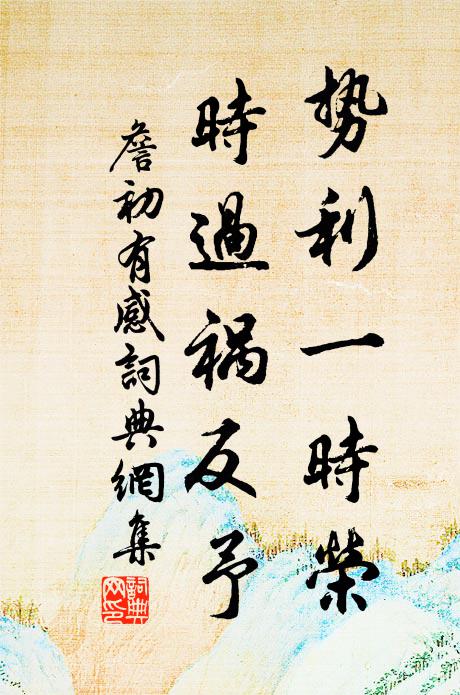 势利一時榮
時過禍反予
詹初有感詞典網集
詞典
网印